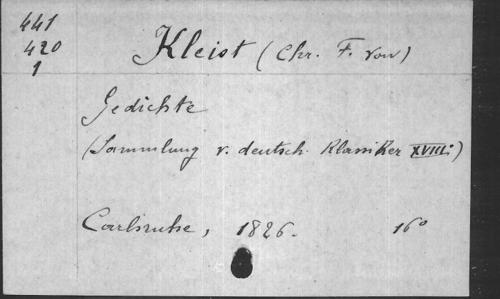 441
420
1
Kleist (Chr. F. von)
Gedichte
(Sammlung v. deutsch. Klassiker XVIII.)
Carlsruhe, 1826. 16°